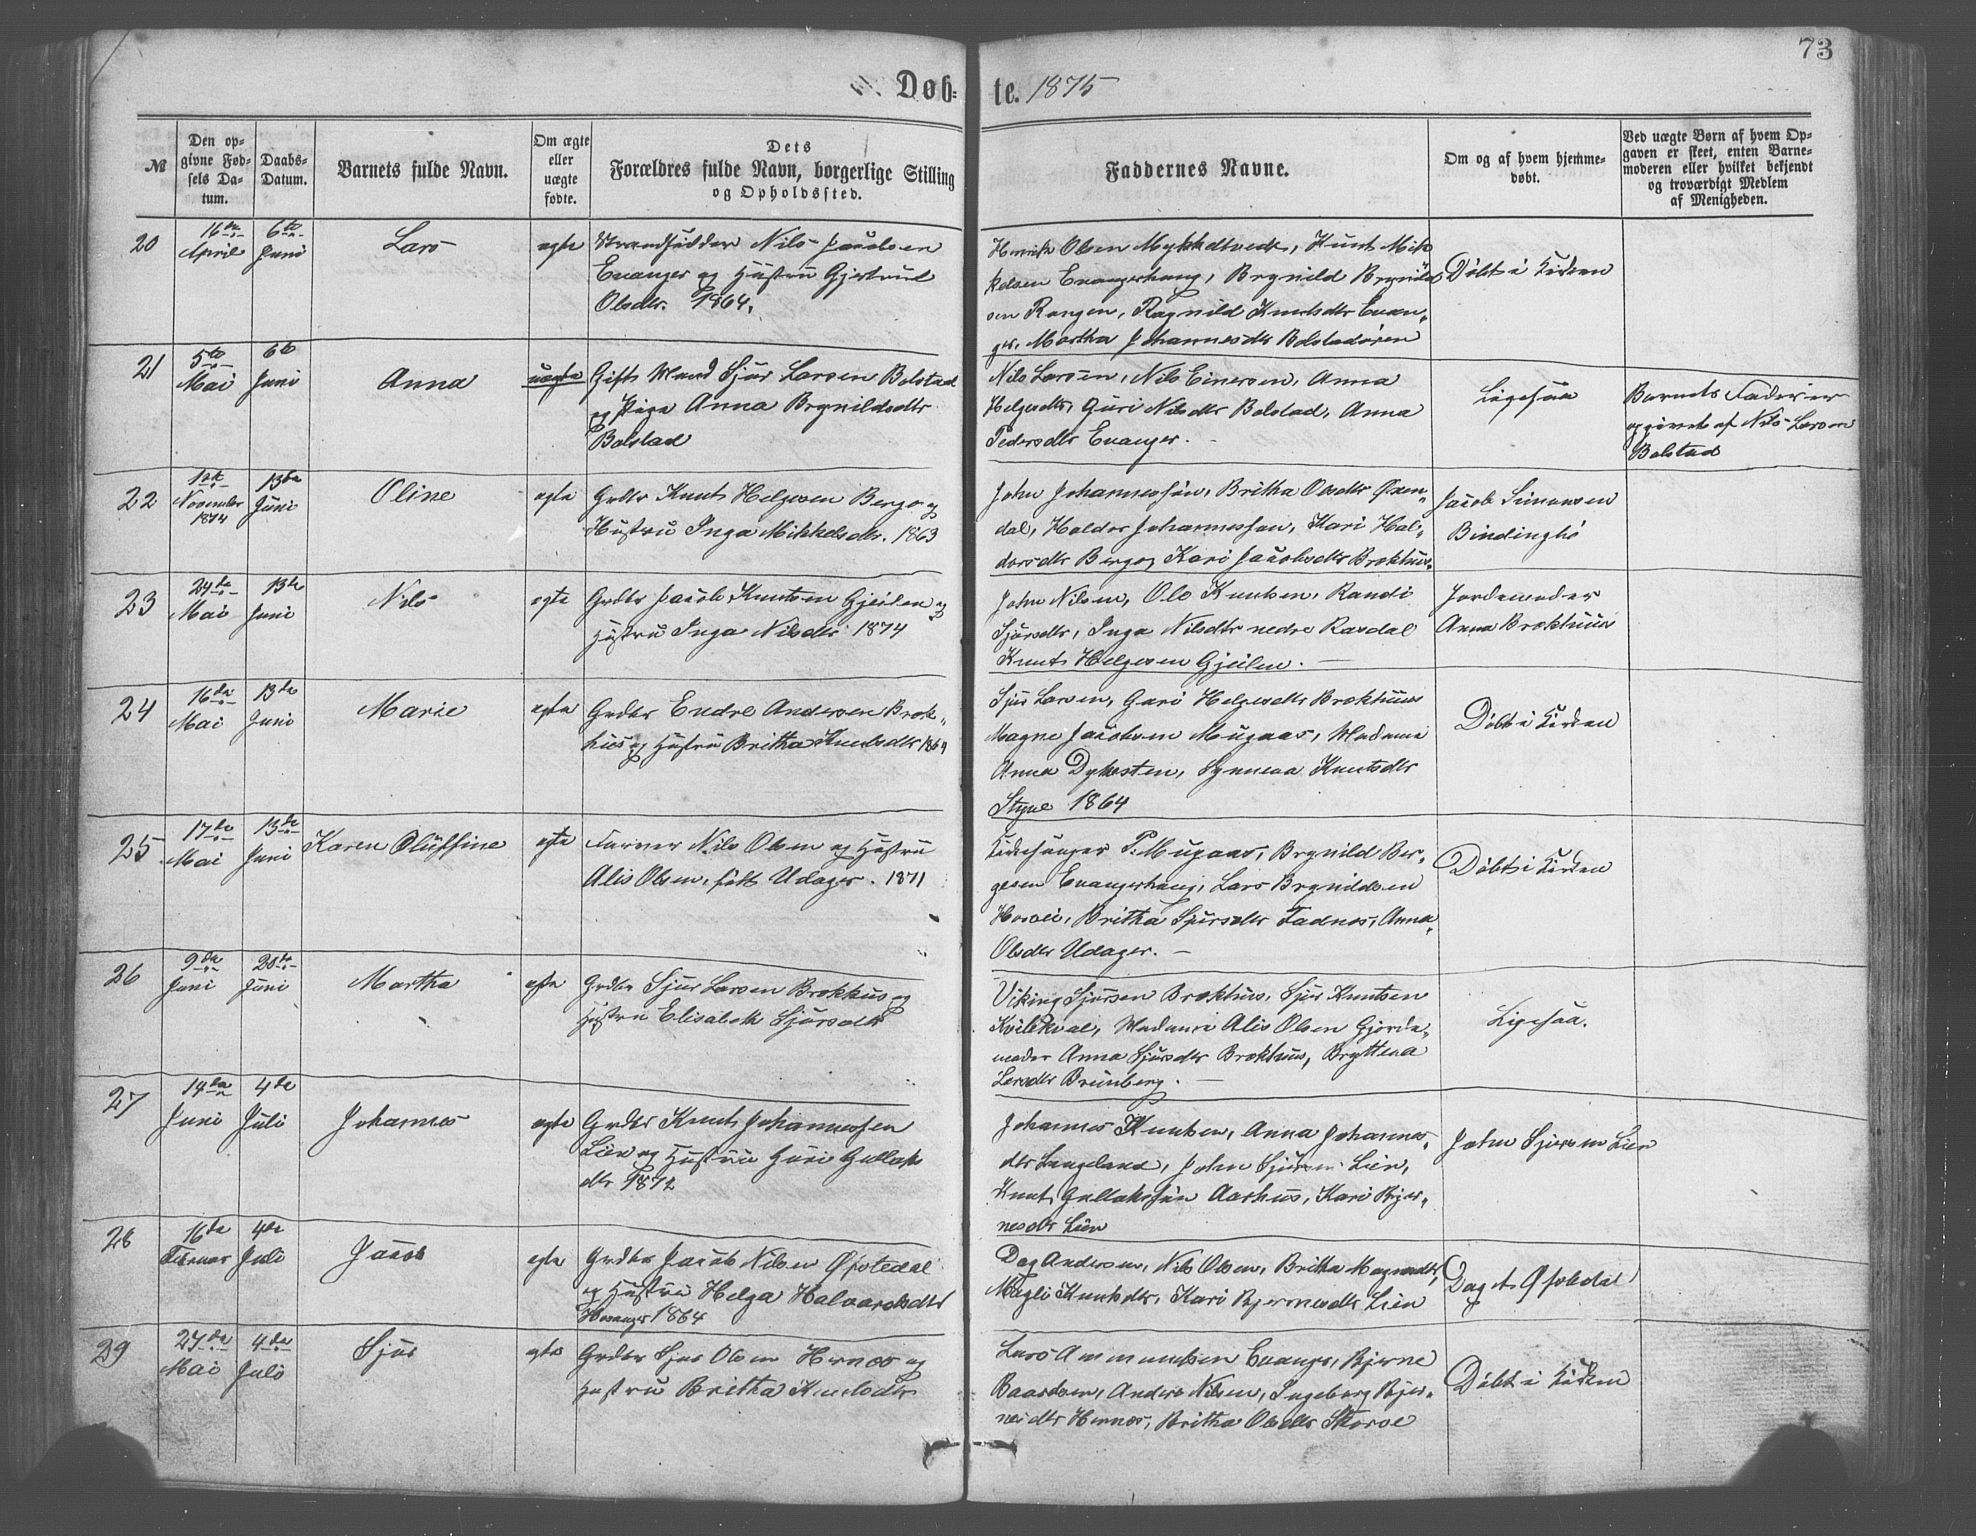 73
Døbte. 1875
№
Den opgivne Fødsels Datum.
Daabs-Datum.
Barnets fulde Navn.
Om ægte eller uægte fødte.
Dets Forældres fulde Navn, borgerlige Stilling og Opholdssted.
Faddernes Navne.
Om og af hvem hjemmedøbt.
Ved uægte Børn af hvem Opgaven er skeet, enten Barnemoderen eller hvilket bekjendt og troværdigt Medlem af Menigheden.
20
16de April
6te Juni
Lars
egte
Strandsidder Nils Jacobsen
Evanger og Hustru Gjertrud
Olsdtr. 1864.
Henrik Olsen Mykkeltvedt, Knut Mik
kelsen Evangerhaug, Brynild Brynild
sen Rongen, Ragnild Knutsdtr Evan-
ger, Martha Johannesdtr Bolstadøren
Døbt i Kirken
21
5te Mai
6te Juni
Anna
uægte
Gift Mand Sjur Larsen Bolstad
og Pige Anna Brynildsdtr
Bolstad
Nils Larsen, Nils Einersen, Anna
Helgesdtr, Guri Nilsdtr Bolstad, Anna
Pedersdtr Evanger.
Ligesaa
Barnets Fader er
opgivet af Nils Larsen
Bolstad
22
1ste November 1874
13de Juni
Oline
egte
Grdbr Knut Helgesen Bergo og
Hustru Inga Mikkelsdtr. 1863
John Johannessøn, Britha Olsdtr Øxen-
dal, Haldor Johannessen, Kari Hal-
dorsdtr Bergo, Kari Jacobsdtr Brekhus
Jacob Simonsen
23
24de Mai
13de Juni
Nils
egte
Grdbr Jacob Knutsen Gjeilen og
Hustru Inga Nilsdtr 1874
John Nilsen, Ole Knutsen, Randi
Sjursdtr, Inga Nilsdtr nedre Rasdal
Knut Helgesen Gjeilen.
Jordemoder
Anna Brekhuus
24
16de Mai
13de Juni
Marie
egte
Grdbr Endre Andersen Brek-
hus og Hustru Britha Knutsdtr 1864
Sjur Larsen, Guri Helgesdtr Brekhuus
Magne Jacobsen Mugaas, Madame
Anna Dykesten, Synneva Knutsdtr
Styve 1864
Døbt i Kirken
25
17de Mai
13de Juni
Karen Oluffine
egte
Farver Nils Olsen og Hustru
Alis Olsen, født Udager. 1871
Kirkesanger P. Mugaas, Brynild Ber-
gesen Evangerhaug, Lars Brynildsen
Horvei, Britha Sjursdtr Fadnes, Anna
Olsdtr Udager.
Døbt i Kirken
26
9de Juni
20de Juni
Martha
egte
Grdbr Sjur Larsen Brekkus og
Hustru Elisabeth Sjursdtr
Viking Sjursen Brekhus, Sjur Knutsen
Kvilekval, Madame Alis Olsen Gjorde-
moder Anna Sjursdtr Brekhus, Brytteva
Larsdtr Brunborg.
Ligesaa.
27
14de Juni
4de Juli
Johannes
egte
Grdbr Knut Johannessen
Lien og Hustru Guri Gullaks
dtr 1872
Johannes Knutsen, Anna Johannes-
dtr Langeland, John Sjursen Lien,
Knut Gullakssøn Aarhus, Kari Bjør-
nesdtr Lien
John Sjursen Lien
28
16de
4de Juli
Jacob
egte
Grdbr Jacob Nilsen Øfstedal
og Hustru Helga Halvardsdtr
1864
Dag Andersen, Nils Olsen, Britha Magnesdtr,
Magli Knutsdtr, Kari Bjørnesdtr Lien
Dag A. Øfstedal
29
27de Mai
4de Juli
Sjur
egte
Grdbr Sjur Olsen Hernes og
Hustru Britha Knutsdtr
Lars Ammundsen Evanger, Bjørne
Baardsen, Anders Nilsen, Ingeborg Bjør-
nesdtr Hernes, Britha Olsdtr Skorve
Døbt i Kirken